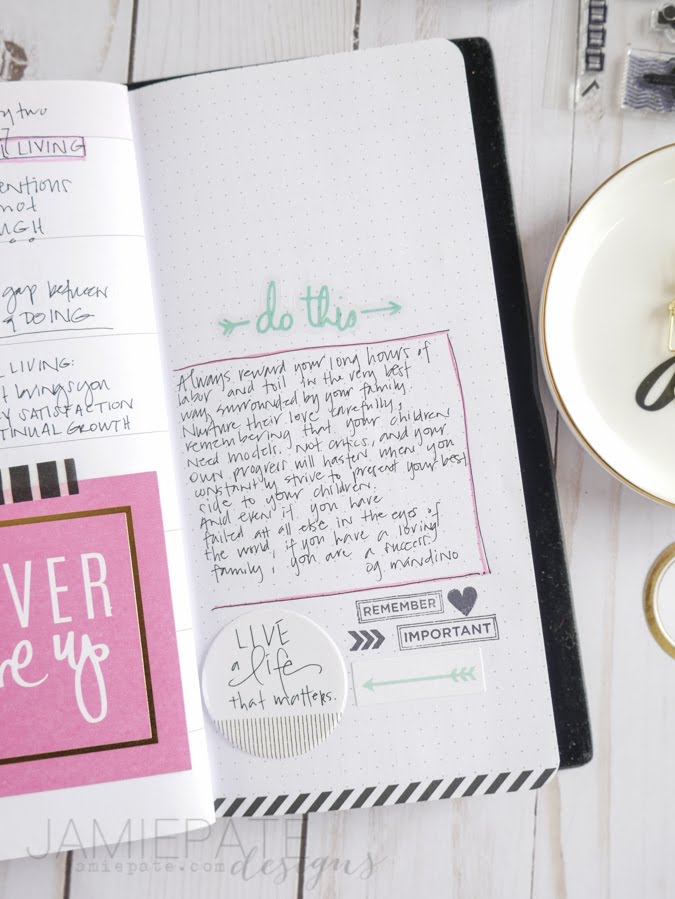 two
LIVING
not
gap between
& DOING
LIVING:
SATISFACTION
GROWTH
do this
Always reward your long hours of
labor and toil in the very best
way, surrounded by your family.
Nurture their love carefully,
remembering that your children
need models, not critics, and your
own progress will hasten when you
constantly strive to present your best
side to your children.
And even if you have
failed at all else in the eyes of
the world, if you have a loving
family, you are a success.
og mandino
REMEMBER
IMPORTANT
LIVE
a life
that matters.
up
JAMIEPATE
jamiepate.com designs